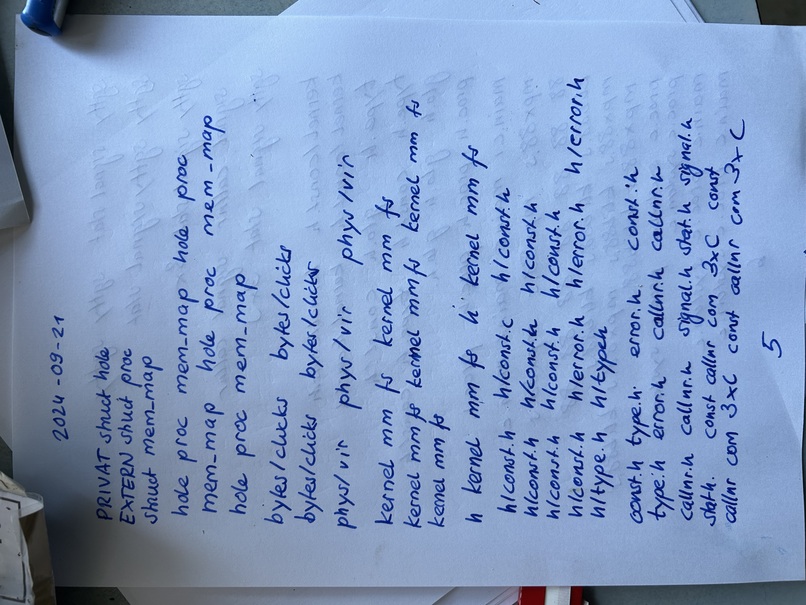 2024-09-21
PRIVAT struct hole
EXTERN struct proc
struct mem_map
hole proc mem_map hole proc
mem_map hole proc mem_map
hole proc mem_map
bytes/clicks bytes/clicks
bytes/clicks bytes/clicks
phys/vir phys/vir phys/vir
kernel mm fs kernel mm fs
kernel mm fs kernel mm fs kernel mm fs
kernel mm fs
h kernel mm fs h kernel mm fs
h/const.h h/const.c h/const.h
h/const.h h/const.h h/const.h
h/const.h h/const.h h/const.h
h/const.h h/error.h h/error.h h/error.h
h/type.h h/type.h
const.h type.h error.h const.h
type.h error.h callnr.h callnr.h
callnr.h callnr.h signal.h stat.h signal.h
stat.h const callnr com 3xC const
callnr com 3xC const callnr com 3xC
5